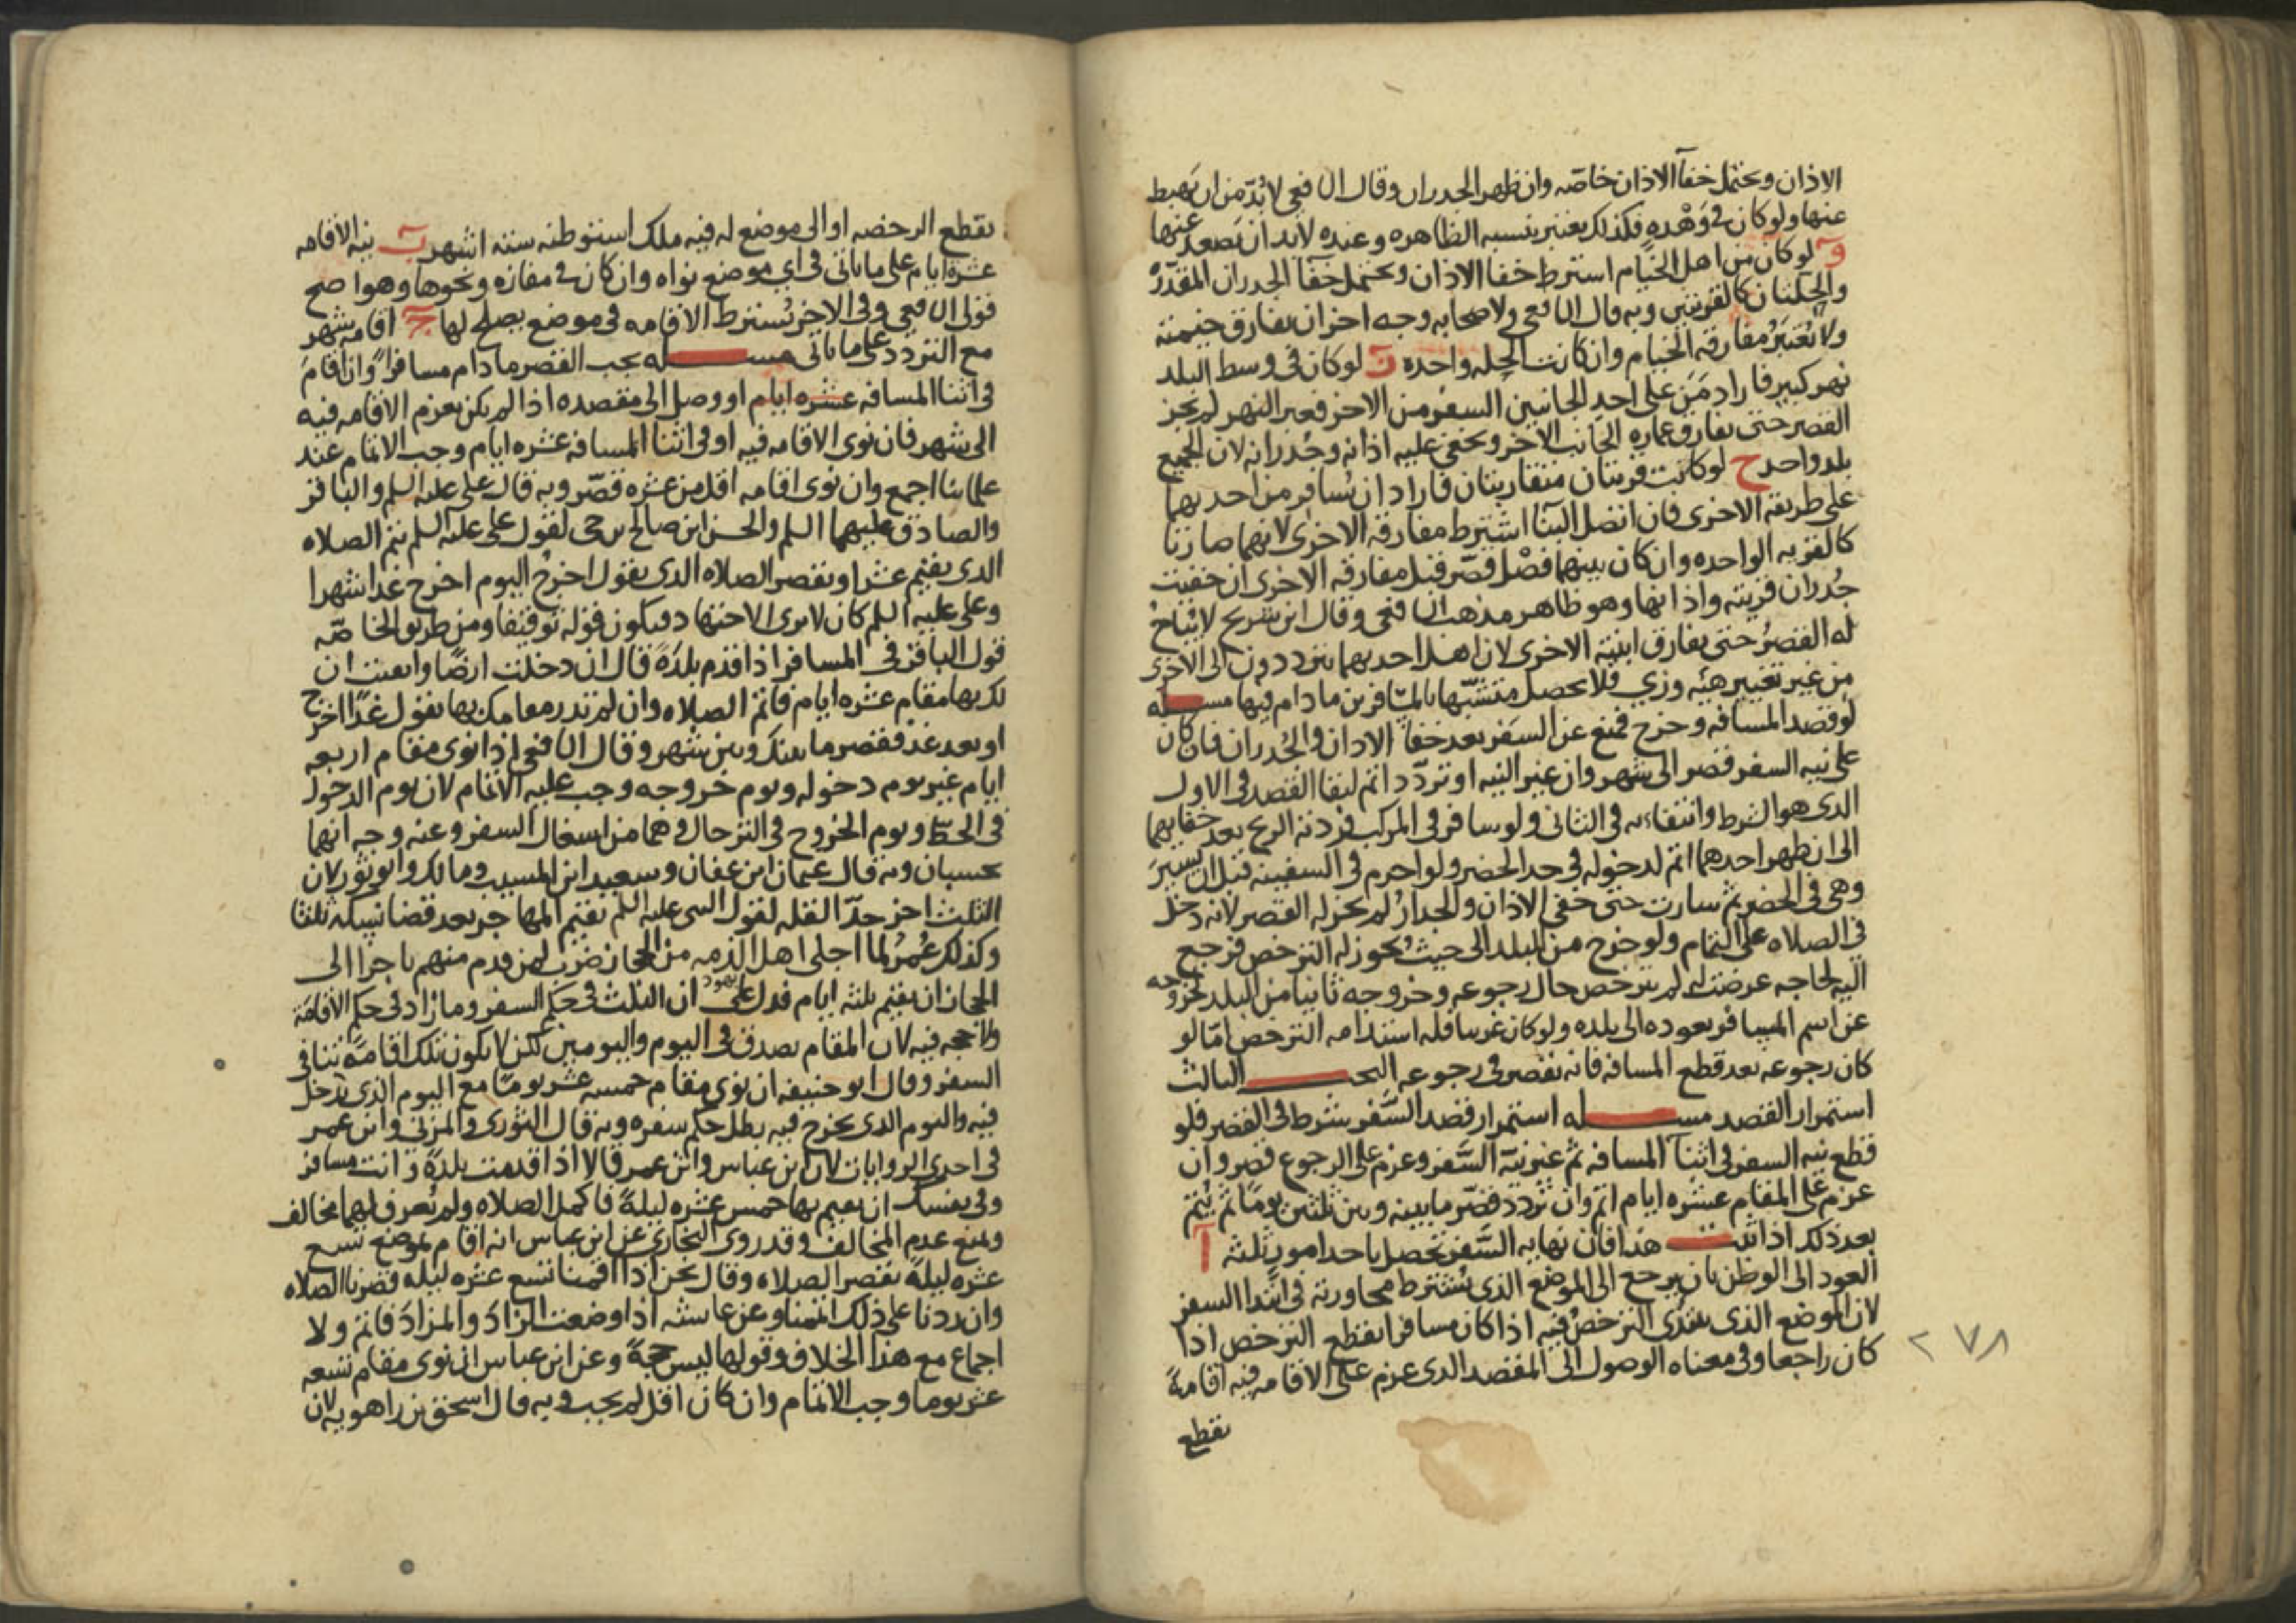 الاذان ويحتمل خفآ الاذان خاصّه وان ظهر الجدران وقال الشافعي لا بُدّ من ان يهبط
عنها ولو كان في وَهْده فكذلك يعتبر بنسبه الظاهره وعنده لا بد ان يَصعد عنها
وَ لو كان من اهل الخيام اشترط خفا الاذان ويحتمل خفآ الجدران المقدّرهْ
والحِلّتان كالقريتين وبه قال الشافعي ولاصحابه وجه اخر ان يفارق خيمته
ولا يُعْتبَر مفارقه الخيام وان كانت الحِله واحده زَ لو كان في وسط البلد
نهر كبير فاراد مَن على احد الجانبين السفر من الاخر فعبر النهر لم يجز
القصر حتى يفارق عماره الجانب الاخر ويخفى عليه اذانه وجُدرانه لان الجميع
بلد واحد ح لو كانت قريتان متقاربتان فاراد ان يُسافر من احدىهما
على طريقه الاخرى فان اتصل البنآ اشترط مفارقه الاخرى لانهما صارتا
كالقريه الواحده وان كان بينهما فصْل قصّر قبل مفارقه الاخرى ان خفيت
جُدران قريته واذانها وهو ظاهر مذهب الشافعي وقال ابن سُريج لا يُباحُ
له القصرُ حتى يفارق ابنية الاخرى لان اهل احدىهما يترددون الى الاخرى
من غير تغيير هيئه وزي فلا يحصل متشبّها بالمسافرين ما دام فيها مسله
لو قصد المسافه وخرج فمنع عن السَفر بعد خفآ الاذان والجُدران فان كان
على نيه السفر قصر الى شهر وان غير النيه او تردّد اتم لبقا القصد في الاول
الذى هو الشرط وانتفاءىه في الثاني ولو سافر في المركب فردته الريح بعد خفايهما
الى ان ظهر احدهما اتم لدخوله في حد الحضر ولو احرم في السفينه قبل ان يسيرَ
وهي في الحضر ثم سارت حتى خفى الاذان والجدارُ لم يجز له القصر لانه دخل
في الصلاه على التمام ولو خرج من البلد الى حيث يجوز له الترخص فرجع
اليه لحاجه عرضت له لم يترخص حال رجوعه وخروجه ثانيا من البلد لخروجه
عن اسم المسافر بعوده الى بلده ولو كان غريبا فله استدامه الترخص امّا لو
كان رجوعه بعد قطع المسافه فانه يقصر في رجوعه البحـــث الثالث
استمرار القصد مســـله استمرار قصد السَّفر شرط في القصر فلو
قطع نيه السفر في اثنآ المسافه ثم غير نيّة السَّفر وعزم على الرجوع قصر وان
عزم على المقام عشره ايام اتم وان تردد قصّر ما بينه وبين ثلثين يومًا ثم يُتم
بعد ذلك اذا ثبت هذا فان نهايه السَّفر تحصل باحد امور ثلثه آ
العود الى الوطن بان يرجع الى الموضع الذى يُشترط مجاوزته في ابتدا السفر
لان الموضع الذى يبتدى الترخص فيه اذا كان مسافرا ينقطع الترخص اذا
كان راجعا وفي معناه الوصول الى المقصد الذى عزم على الاقامه فيه اقامةً
تقطع
٢٧٨
تقطع الرخصه او الى موضع له فيه ملك استوطنه سته اشهر بَ نيه الاقامه
عشرة ايام على ما ياتي في اي موضع نواه وان كان في مفازه ونحوها وهو اصح
قولى الشافعي وفى الاخر يُشترط الاقامه في موضع يصلح لها جَ اقامه شهر
مع التردد على ما ياتى مســـله يجب القصر ما دام مسافرا وان اقامَ
في اثنا المسافه عشره ايام او وصل الى مقصده اذا لم يكن بعزم الاقامه فيه
الى شهر فان نوى الاقامه فيه او في اثنا المسافه عشره ايام وجب الاتمام عند
علمائنا اجمع وان نوى اقامه اقل من عشره قصّر وبه قال على عليه السلم والباقر
والصادق عليهما السلم والحسن ابن صالح بن حى لقول على عليه السلم يتم الصلاه
الذى يقيم عشرا ويقصر الصلاه الذى يقول اخرج اليوم اخرج غدا شهرا
وعلى عليه السلم كان لا يرى الاجتهاد فيكون قوله توقيفا ومن طريق الخاصّه
قول الباقر في المسافر اذا قدم بلدَةً قال ان دخلت ارضًا وايقنت ان
لك بها مقام عشره ايام فاتم الصلاه وان لم تدر مقامك بها تقول غدًا اخرج
او بعد غد فقصر ما بينك وبين شهر وقال الشافعي اذا نوى مقام اربعه
ايام غير يوم دخوله ويوم خروجه وجب عليه الاتمام لان يوم الدخول
في الحَطّ ويوم الخروج في الترحال وهما من اشغال السفر وعنه وجه انهما
يحسبان وبه قال عثمان ابن عفان وسعيد ابن المسيب ومالك وابو ثور لان
الثلث اخر حدّ القله لقول النبى عليه السلم يقيم المهاجر بعد قضا نسكه ثلثا
وكذلك عُمرُ لما اجلى اهل الذمه من الحجاز ضرب لمن قدم منهم تاجرا الى
الحجاز ان يقيم ثلثه ايام فدل على ان الثلث في حكم السفر وما زاد في حكم الاقامَة
ولا حجه فيه لان المقام يصدق في اليوم واليومين لكن لا يكون تلك اقامةً تنافي
السفر وقال ابو حنيفه ان نوى مقام خمسه عشر يومًا مع اليوم الذى يدخل
فيه واليوم الذى يخرج فيه بطل حكم سفره وبه قال الثورى والمزني وابن عمر
في احدى الروايات لان ابن عباس وابن عمر قالا اذا قدمت بلدةً وانت مسافر
وفي نفسك ان تقيم بها خمس عشره ليلةً فاكمل الصلاه ولم يُعرف لهما مخالف
ويمنع عدم المخالف وقد روى البخاري عن ابن عباس انه اقام بموضع تسع
عشره ليلةً يقصر الصلاه وقال نحن اذا اقمنا تسع عشره ليله قصرنا الصلاه
وان زدنا على ذلك اتممنا وعن عايشه اذا وضعت الزادَ والمزادَ فاتم ولا
اجماع مع هذا الخلاف وقولها ليس حجةً وعن ابن عباس ان نوى مقام تسعه
عشر يوما وجب الاتمام وان كان اقل لم يجب وبه قال اسحق بن راهويه لان